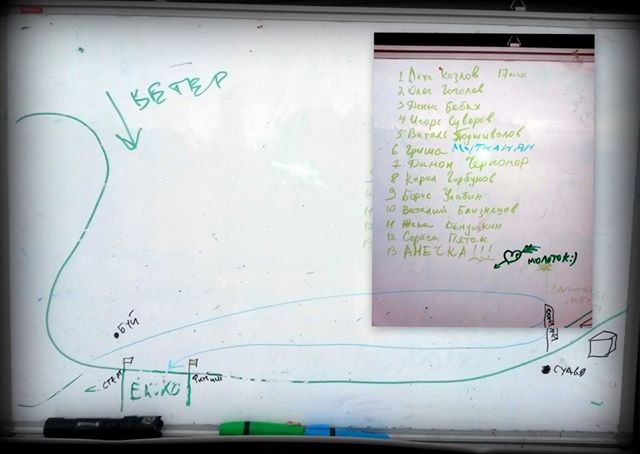 ВЕТЕР
1 Леха Козлов 17
2 Олег Гоголев
3 Денис Бабых
4 Игорь Суворов
5 Виталь Поршиволов
6 Гриша
7 Димон Черномор
8 Кирил Горбунов
9 Борис
10 Виталий Близнецов
11 Жека
12 Серёга Петак
13 АНЕЧКА!!!
МОЛОТОК:)
БУЙ
СТАРТ
ФИНИШ
СУДЬЯ